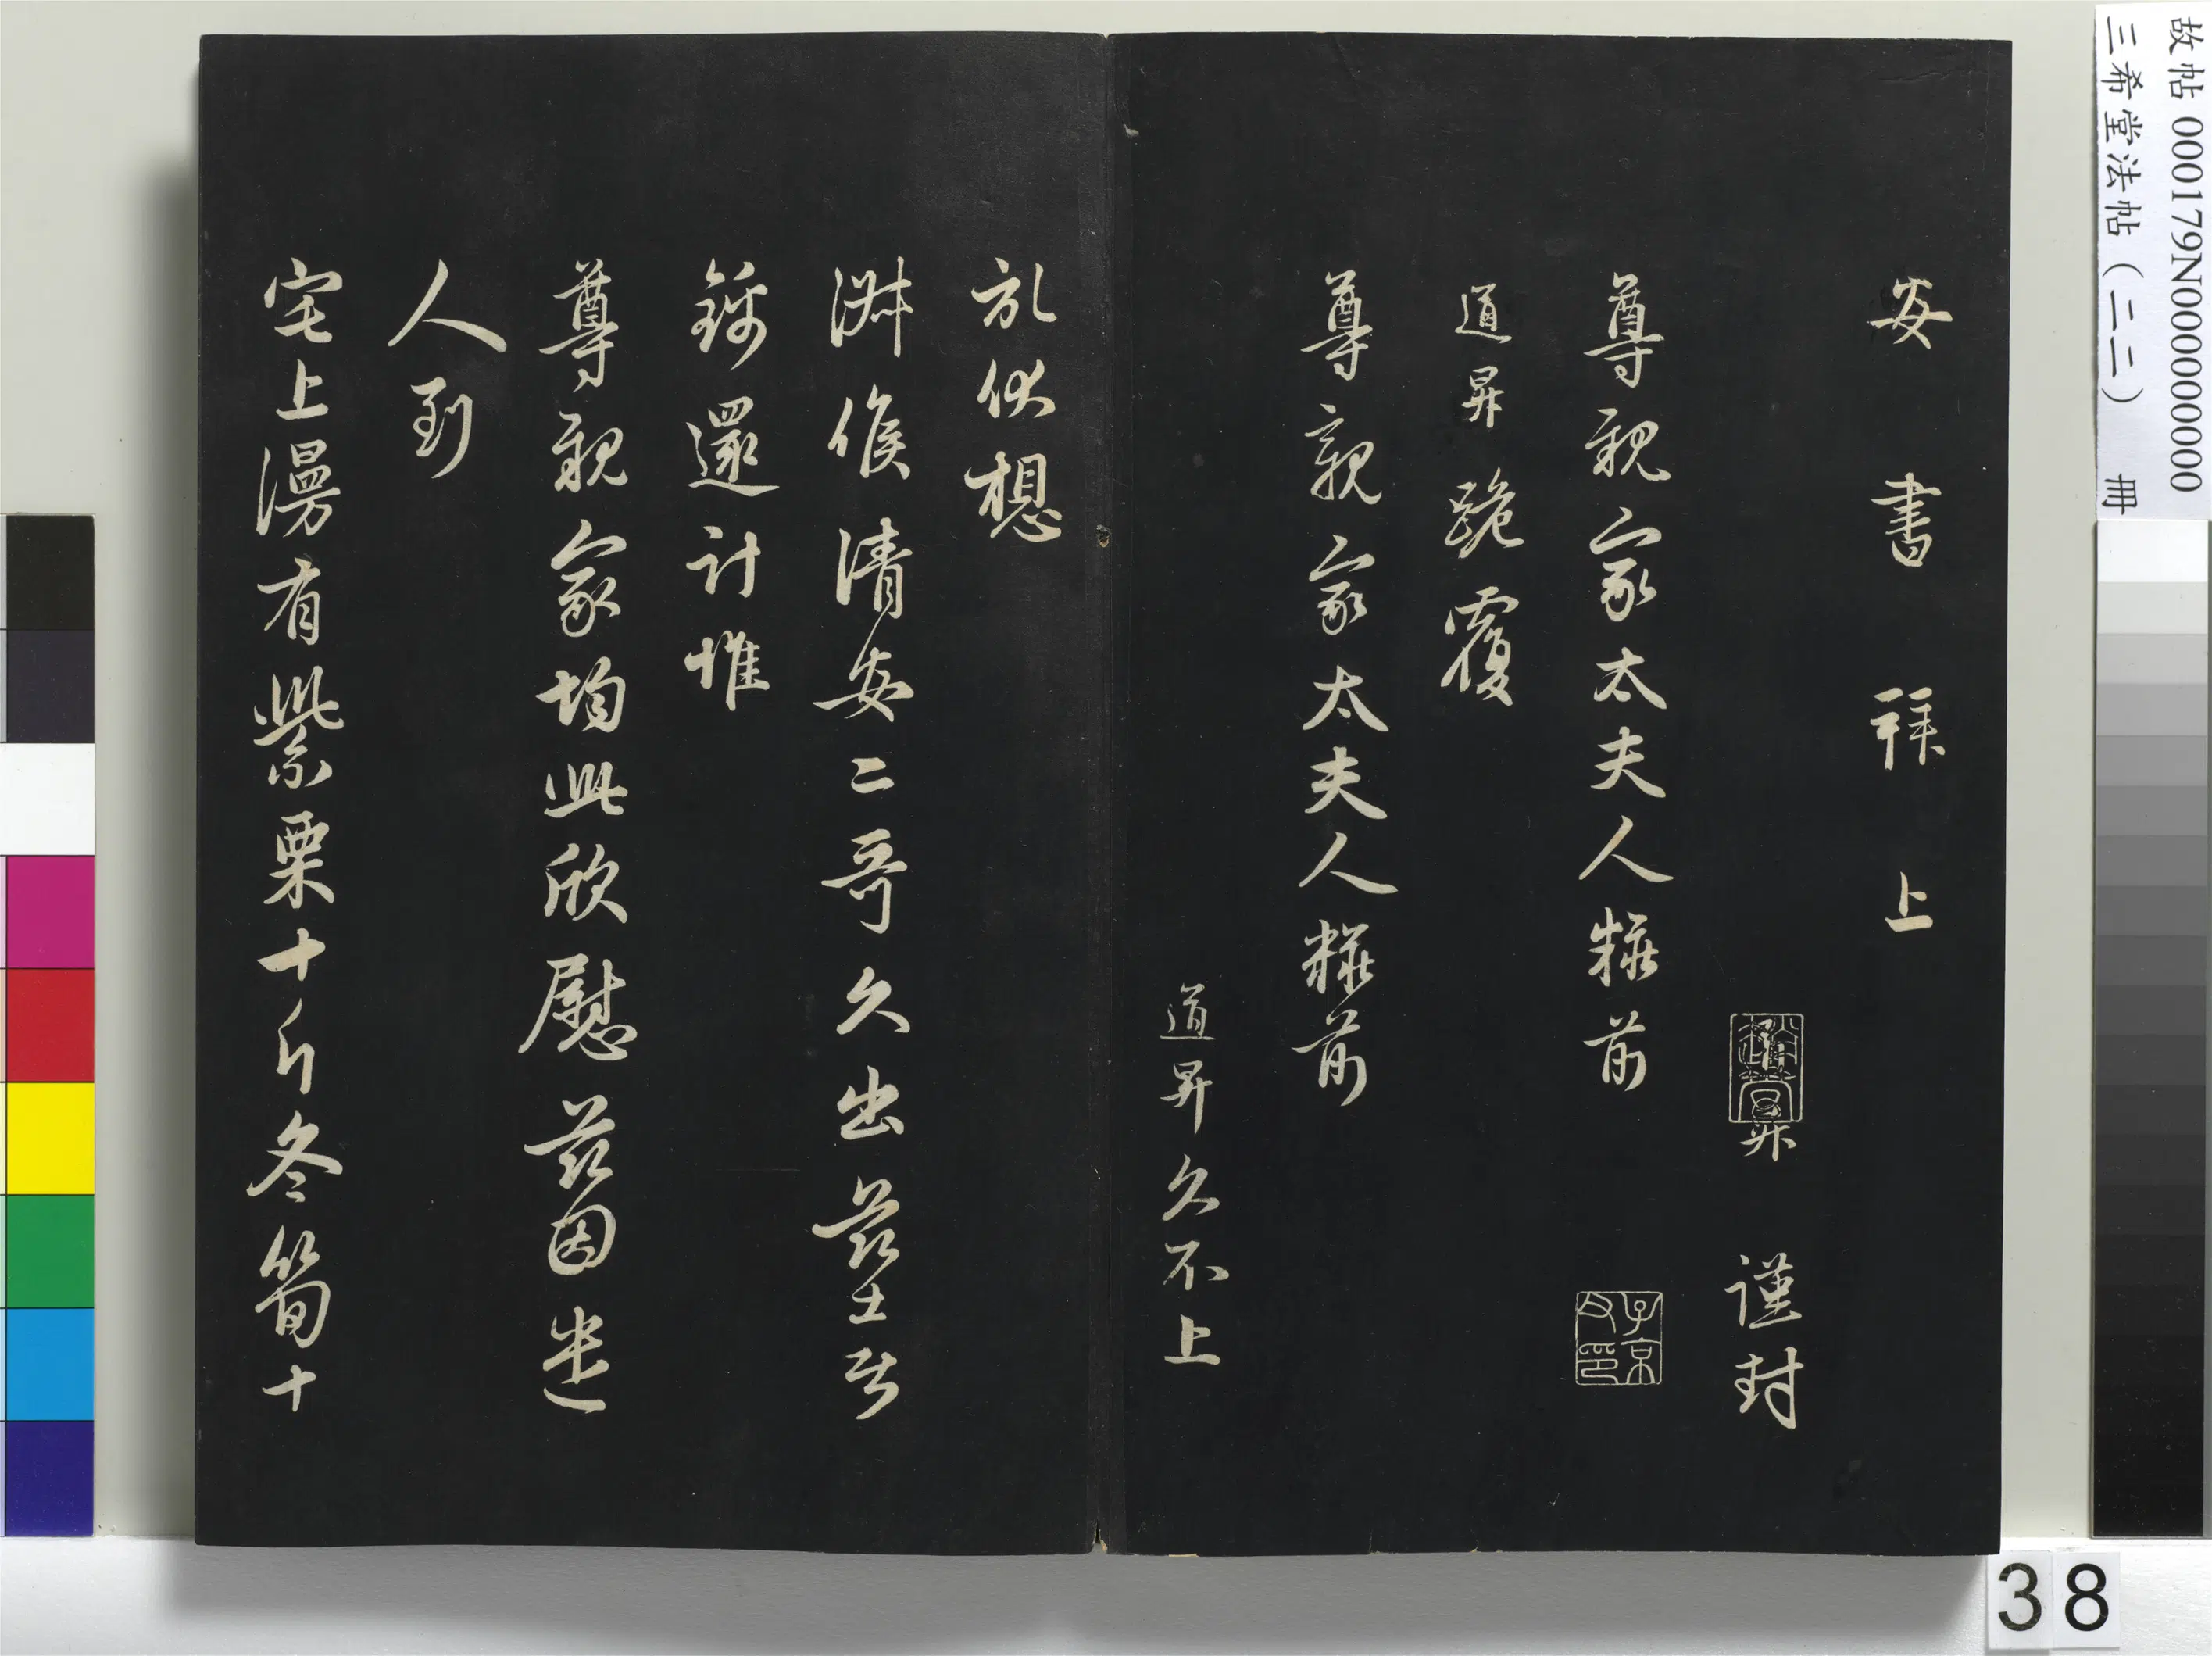 故帖 000179N000000000
三希堂法帖（二二） 冊
安書拜上
道昇 謹封
尊親家太夫人粧前
子京
父印
道昇跪覆
尊親家太夫人粧前
道昇久不上
狀伏想
淑候清安二哥久出茲
歸還計惟
尊親家均此欣慰茲因遣
人到
宅上謾有紫栗十斤冬筍十
38